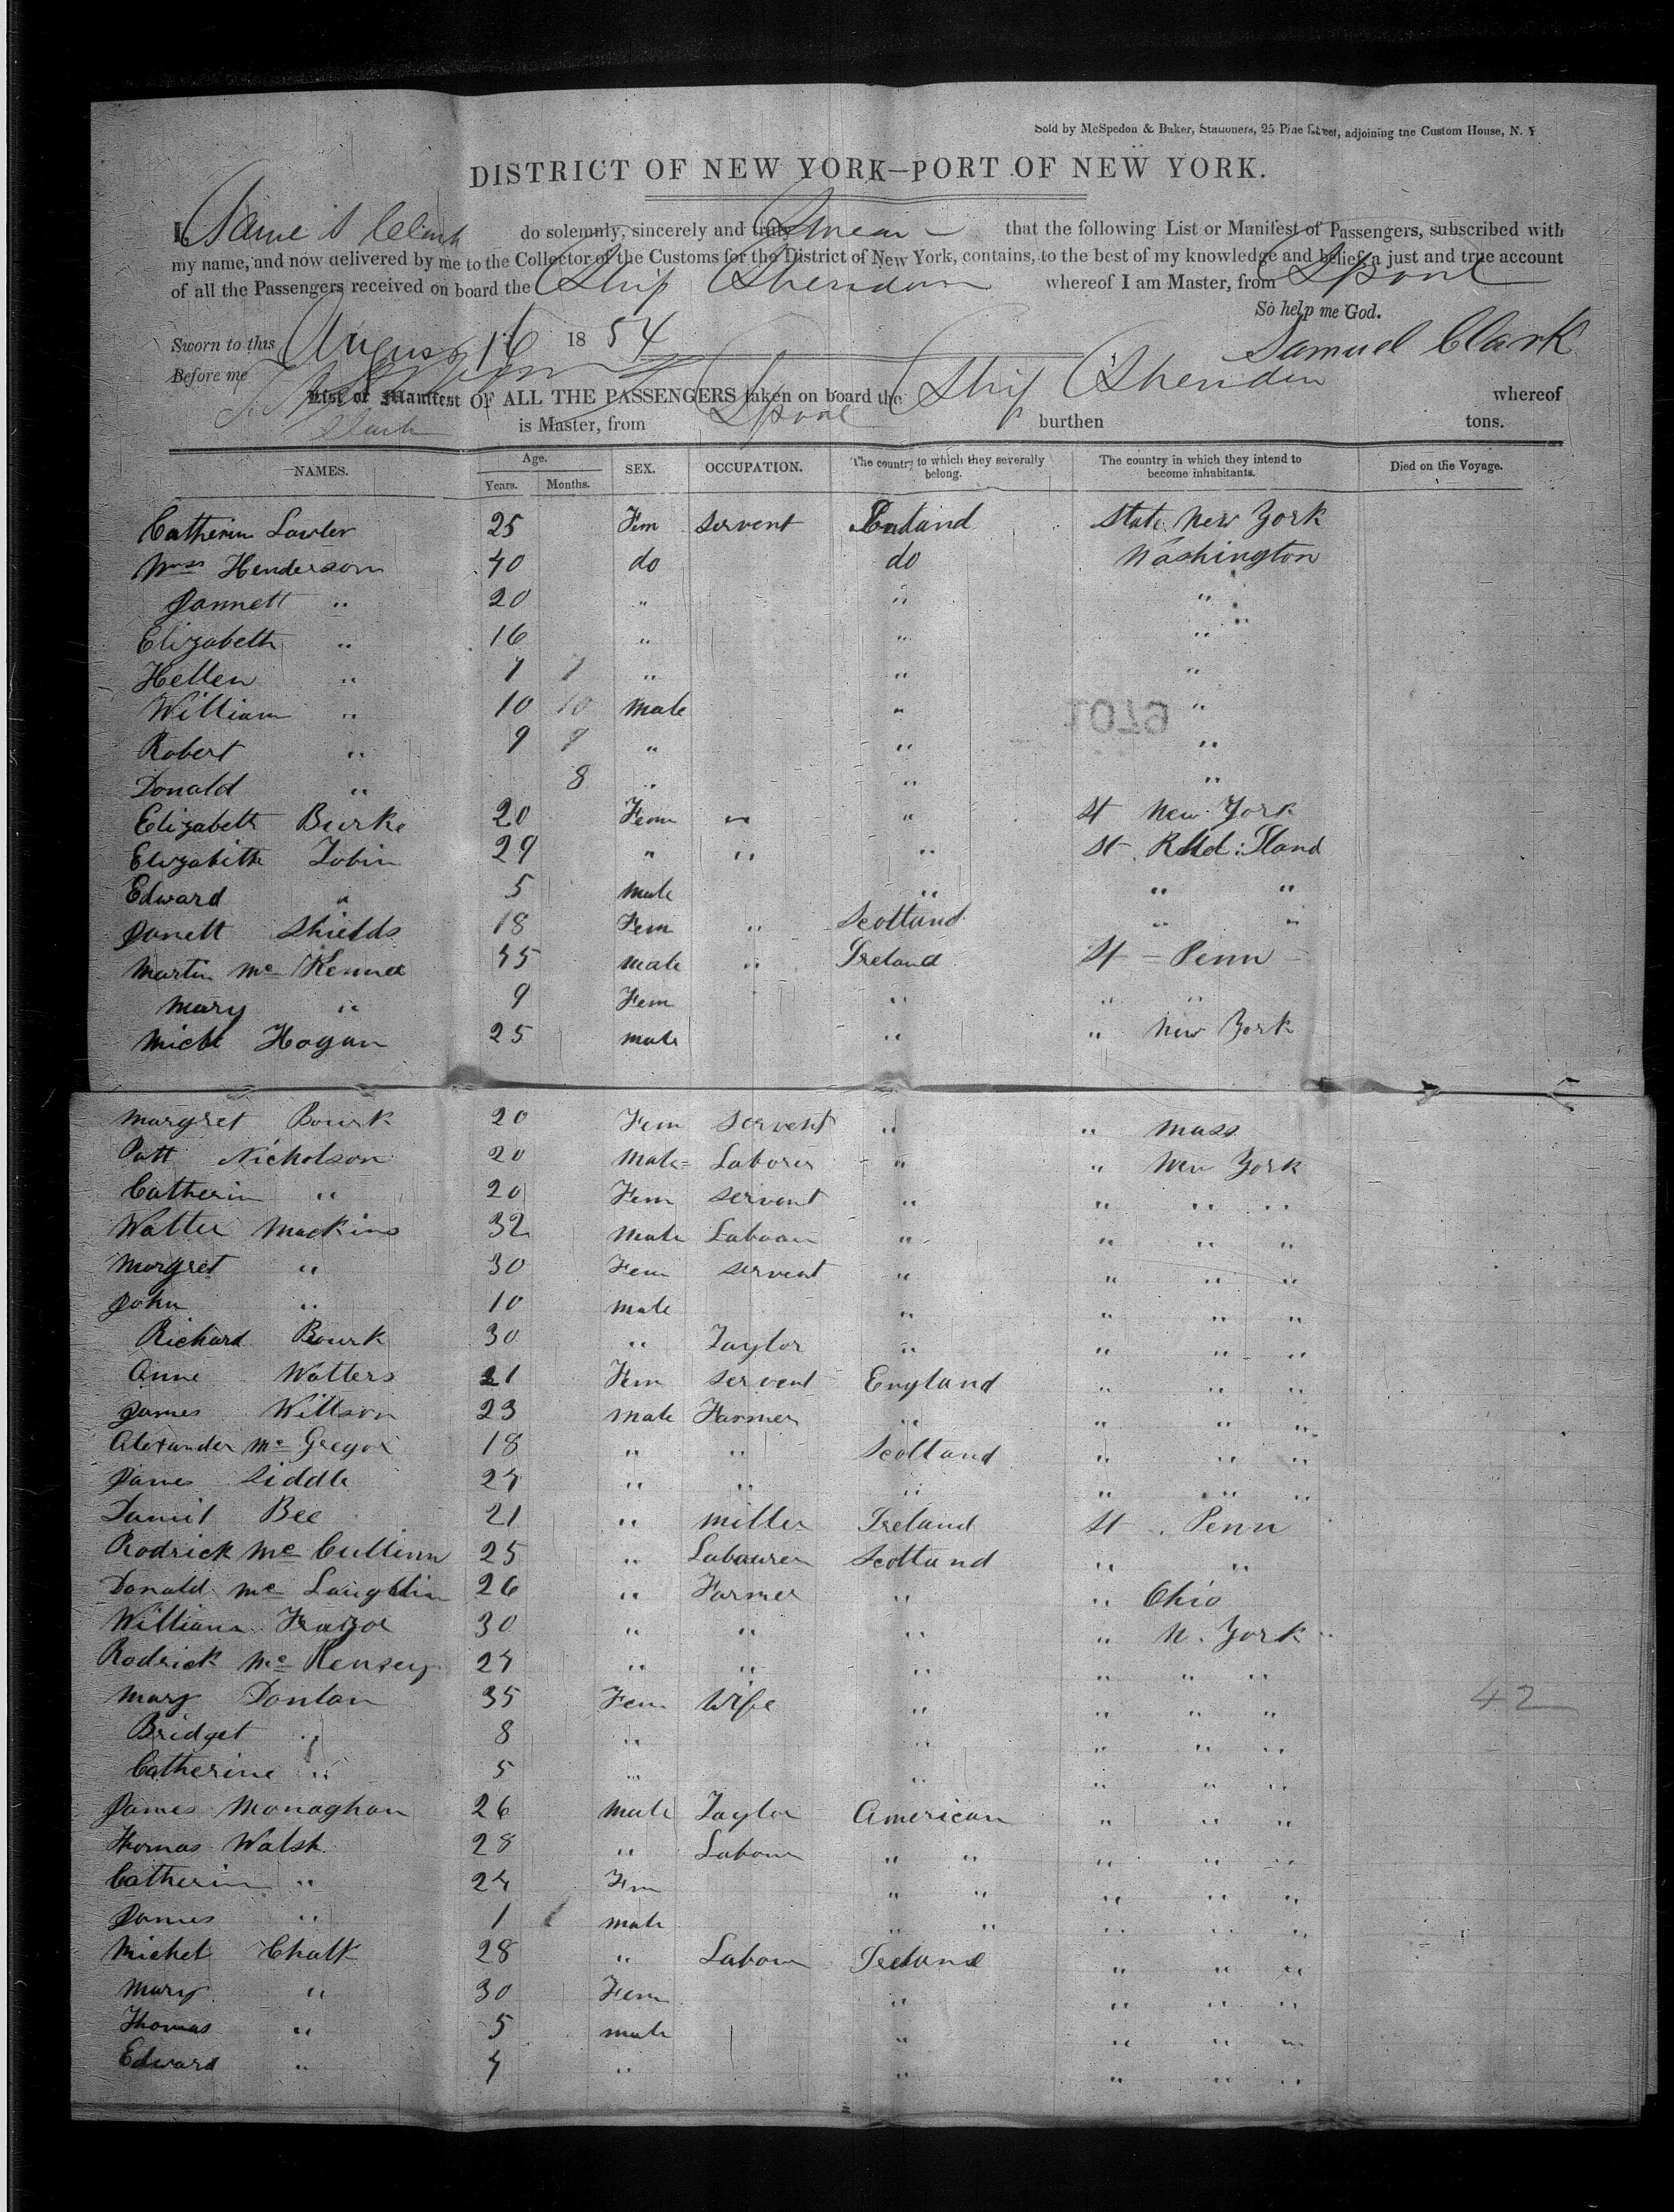 Sold by McSpedon & Baker, Stationers, 25 Pine Street, adjoining the Custom House, N. Y
DISTRICT OF NEW YORK—PORT OF NEW YORK.
I, Clark do solemnly, sincerely and truly Swear that the following List or Manifest of Passengers, subscribed with
my name, and now delivered by me to the Collector of the Customs for the District of New York, contains, to the best of my knowledge and belief, a just and true account
of all the Passengers received on board the Ship Sheridan whereof I am Master, from Lpool
So help me God.
Sworn to this August 16 1854 Samuel Clark
Before me
List or Manifest OF ALL THE PASSENGERS taken on board the Ship Sheridan whereof
Clark is Master, from Lpool burthen tons.
NAMES. Age. Years. Months. SEX. OCCUPATION. The country to which they severally belong. The country in which they intend to become inhabitants. Died on the Voyage.
Catherin Lawler 25 Fem servent State New York
Mrss Henderson 40 do do Washington
Jannett " 20 " " "
Elizabeth " 16 " " "
Hellen " 7 7 " " "
William " 10 10 male " "
6701
Robert " 9 9 " " "
Donald " 8 " " "
Elizabeth Burke 20 Fem " " St New York
Elizabith Tobin 29 " " " St Rhd: Iland
Edward " 5 male " " "
Janett Shields 18 Fem " Scotland " "
Martin Mc Kenna 45 male " Ireland St = Penn
Mary " 9 Fem " " "
Mick Hogan 25 male " " New York
Margret Bourk 20 Fem servent " " Mass
Patt Nicholson 20 Male Laborer " " New York
Catherin " 20 Fem servent " " " "
Walter Mackins 32 Male " " " "
Margret " 30 Fem servent " " " "
John " 10 male " " " "
Richard Bourk 30 " Taylor " " " "
Anne Watters 21 Fem servent England " " "
James Willson 23 male Farmer " " " "
Alexander Mc Gregor 18 " " Scotland " " "
James Liddle 24 " " " " " "
Daniel Bee 21 " miller Ireland St Penn
Rodrick Mc Cullinn 25 " Labourer Scotland " "
Donald Mc Laughlin 26 " Farmer " " Ohio
William Frazor 30 " " " " N. York
Rodrick Mc Kensey 24 " " " " " "
Mary Donlan 35 Fem Wife " " " " 42
Bridget " 8 " " " " "
Catherine " 5 " " " " "
James Monaghan 26 Male Taylor American " " "
Thomas Walsh 28 " Labour " " " " "
Catherin " 24 Fem " " " " "
James " 1 male " " " " "
Michel Chalk 28 " Labour Ireland " " "
Mary " 30 Fem " " " "
Thomas " 5 male " " " "
Edward " 4 " " " " "